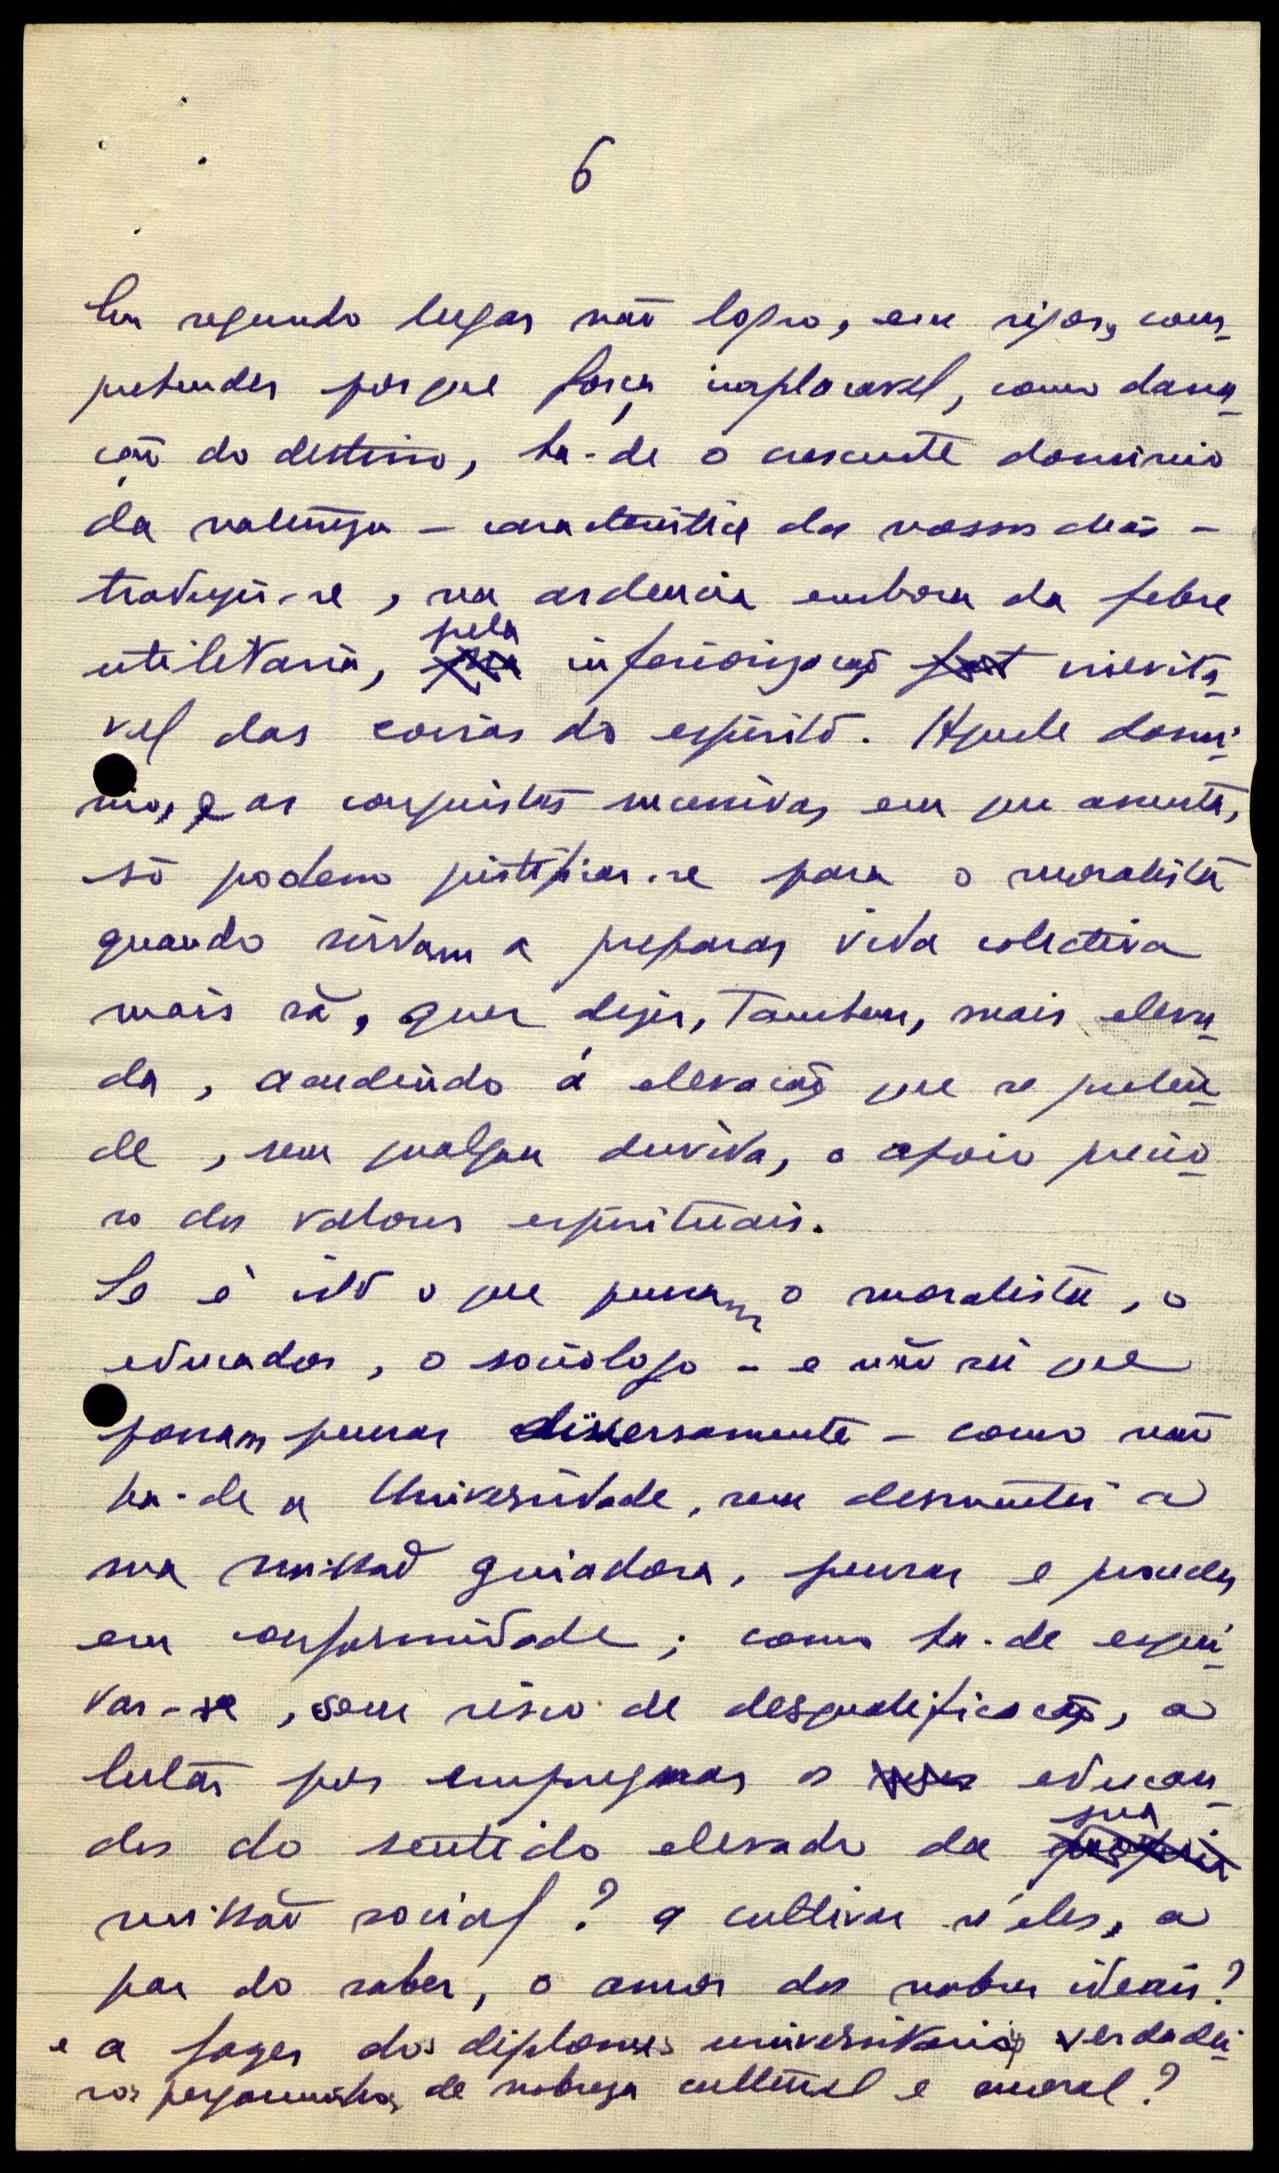 6
Em segundo lugar não logro, em rigor, com-
preender porque força implacavel, como dana-
ção do destino, ha-de o crescente dominio
da natureza - caracteristica dos nossos dias -
traduzir-se, na ardencia embora da febre
utilitaria, pela inferiorização inevita-
vel das coisas do espirito. Aquele domi-
nio, e as conquistas sucessivas em que assenta,
só podem justificar-se para o moralista
quando sirvam a preparar vida colectiva
mais sã, quer dizer, tambem, mais eleva-
da, acudindo á elevação que se preten-
de, sem qualquer duvida, o apoio precio-
so dos valores espirituais.
Se é isto o que pensam o moralista, o
educador, o sociologo - e não sei que
possam pensar diversamente - como não
ha-de a Universidade, sem desmentir a
sua missão guiadora, pensar e proceder
em conformidade; como ha-de esqui-
var-se, sem risco de desqualificação, a
lutar por impregnar os educan-
dos do sentido elevado da sua
missão social? a cultivar n'eles, a
par do saber, o amor dos nobres ideais?
e a fazer dos diplomas universitarios verdadei-
ros pergaminhos de nobreza cultural e moral?